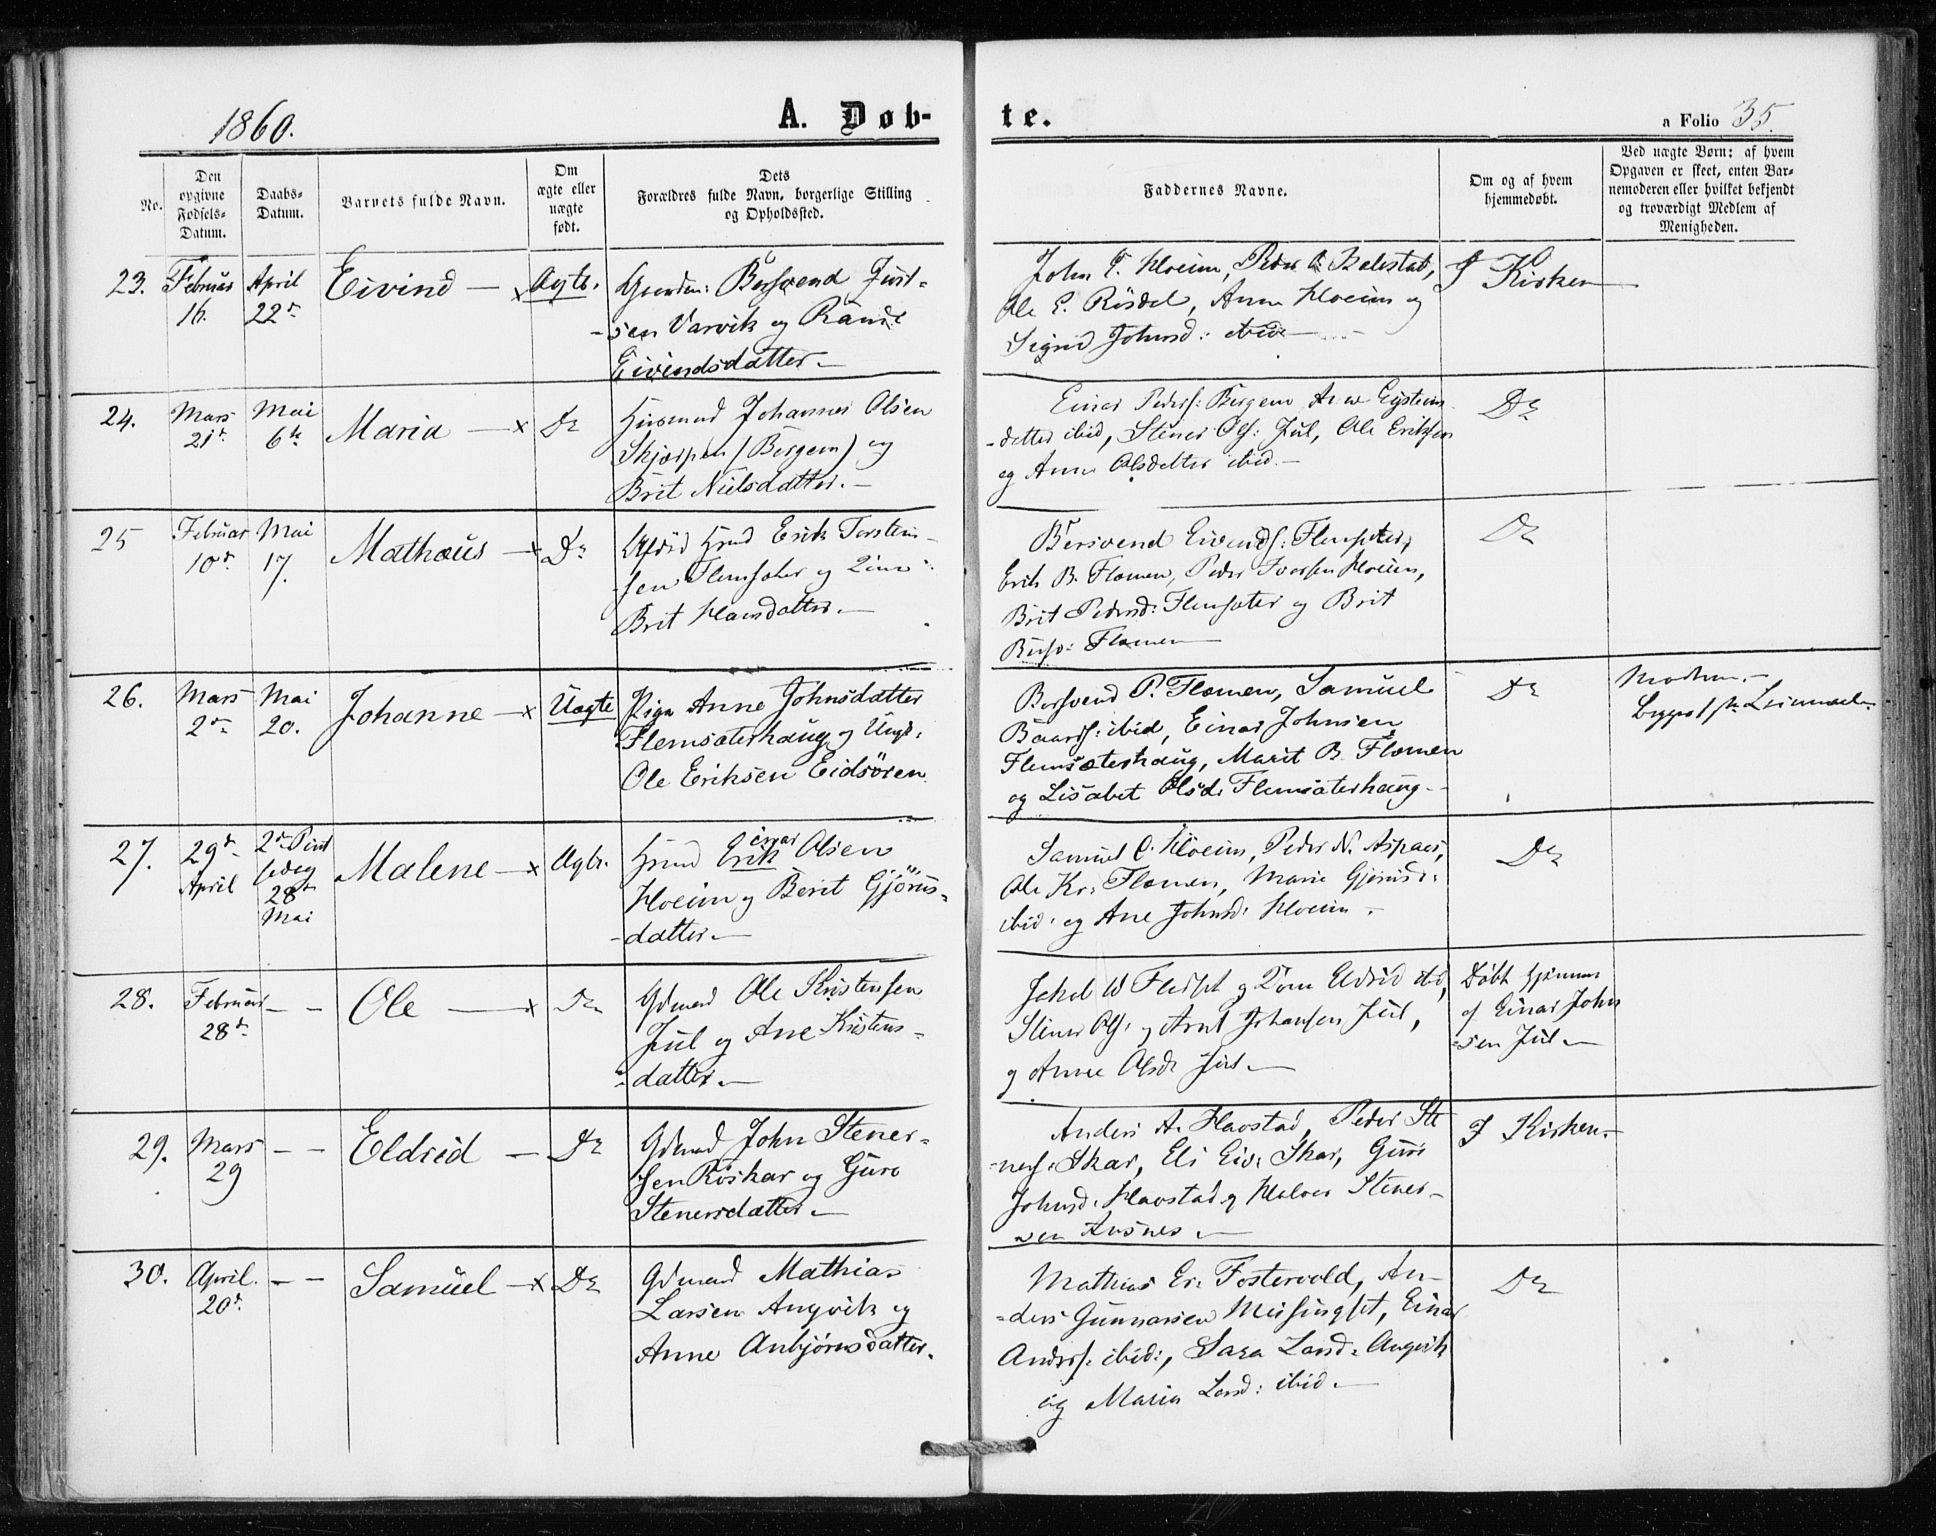 1860.
A. Døb-
te.
a Folio 35.
No.
Den
opgivne
Fødsels-
Datum.
Daabs-
Datum.
Barnets fulde Navn.
Om
ægte eller
uægte
født.
Dets
Forældres fulde Navn, borgerlige Stilling
og Opholdssted.
Faddernes Navne.
Om og af hvem
hjemmedøbt.
Ved uægte Børn: af hvem
Opgaven er skeet, enten Bar-
nemoderen eller hvilket bekjendt
og troværdigt Medlem af
Menigheden.
23.
Februar
16.
April
22de
Eivind
Ægte.
Bersvend Just-
sen Varvik og Randi
Eivindsdatter.
John E. Hoeim, Peder
Ole E. Rösdel, Anne Hoeim og
Sigrid Johnsd: ibid
I Kirken
24.
Mars
21de
Mai
6te
Maria
Do
Husmand Johannes Olsen
(Bergem) og
Brit Nielsdatter.
Einar Peders: Bergem
datter ibid, Stener Ols: Jül, Ole Eriksen
og Anne Olsdatter ibid.
Do
25
Februar
10de
Mai
17.
Mathæus
Do
Erik Torstein-
sen Flemsæter og
Brit Hansdatter.
Bersvend Eivends: Flemsæter,
Erik B. Flemen, Peder Iversen Hoeim,
Brit Pedersd: Flemsæter og Brit
Flemen
Do
26.
Mars
2den
Mai
20.
Johanne
Uægte
Pige Anne Johnsdatter
Flemsæterhaug og Ungk:
Ole Eriksen Eidsören
Bersvend P. Flemen, Samuel
Baards: ibid, Einar Johnsen
Flemsæterhaug, Marit B. Flemen
og Lisabet Olsd: Flemsæterhaug.
Do
Modren.
27.
29de
April
2den Pint
sedag
28de
Mai
Malene
Ægte.
Einar
Erik Olsen
Hoeim og Berit Gjörus-
datter.
Samuel O. Hoeim, Peder N. Aspaas,
Ole Kr: Flemen, Marie Gjörusd:
ibid: og Ane Johnsd: Hoeim.
Do
28.
Februar
28de
Ole
Do
Gdmand Ole Kristensen
Jül og Ane Kristens-
datter.
Stener Ols: og Arnt Johansen Jül,
og Anne Olsd: Jül.
Døbt hjemme
af Einar John
sen Jül.
29.
Mars
29
Eldrid
Do
Gdmand John Stener-
sen Röskar og Guro
Stenersdatter.
Anders A. Havstad, Peder Ste
ners: Skar, Eli Eiv: Skar, Guri
Johnsd: Havstad og Halvor Stener-
sen Aasnes.
I Kirken.
30.
April
20de
Samuel
Do
Gdmand Mathias
Larsen Angvik og
Anne Anbjörnsdatter.
Mathias Er: Fostervold, An-
ders Gunnarsen Meisingset, Einar
Anders: ibid:, Sara Larsd: Angvik
og Maria Larsd: ibid.
Do